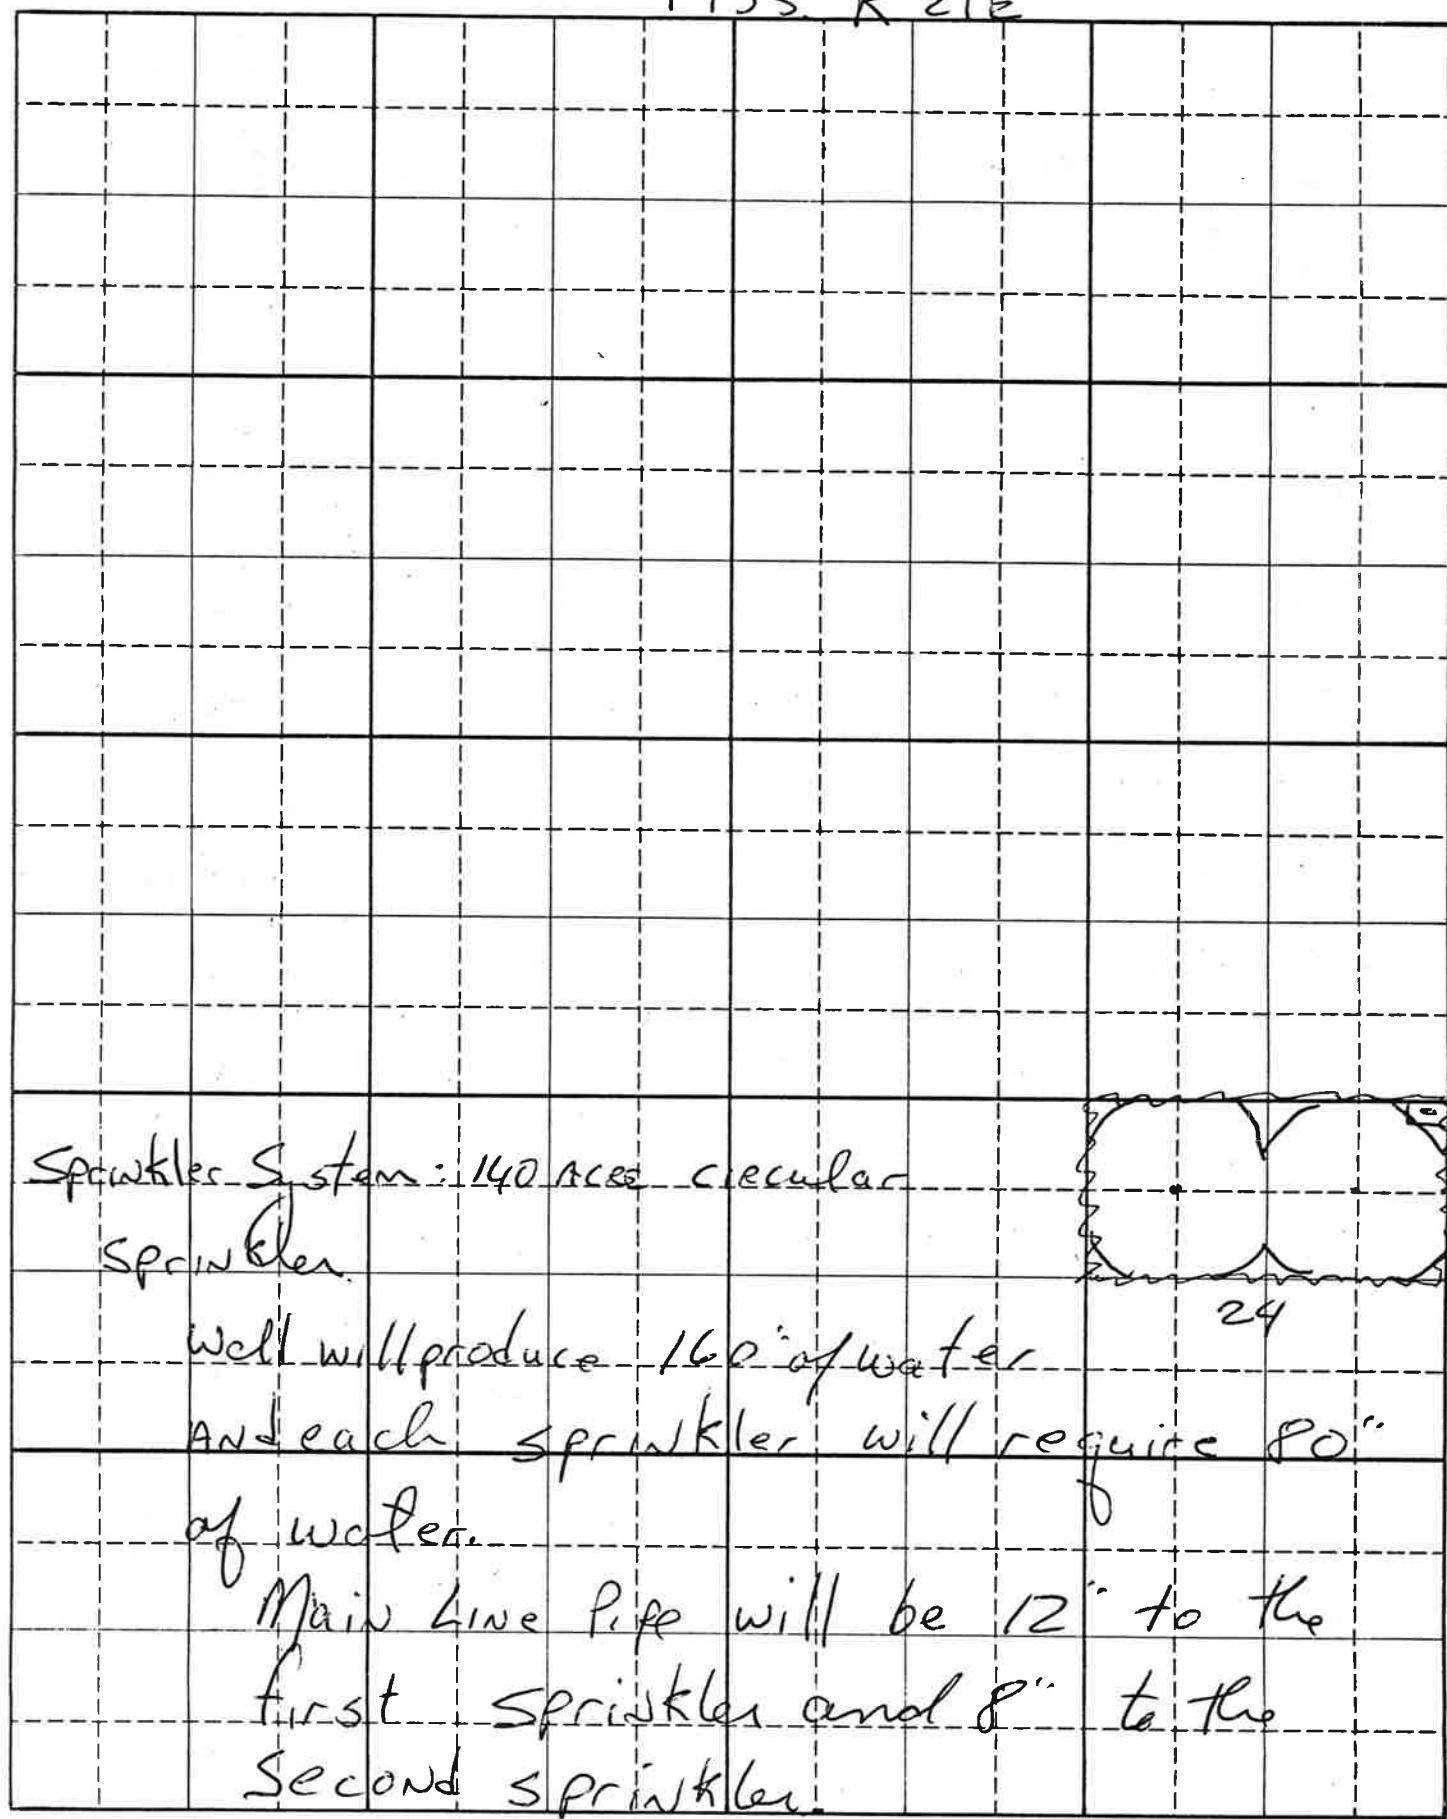 R 21E
Sprinkler System: 140 Acre circular
sprinkler.
24
Well will produce 160" of water
And each sprinkler will require 80"
of water.
Main Line Pipe will be 12" to the
first sprinkler and 8" to the
Second sprinkler.